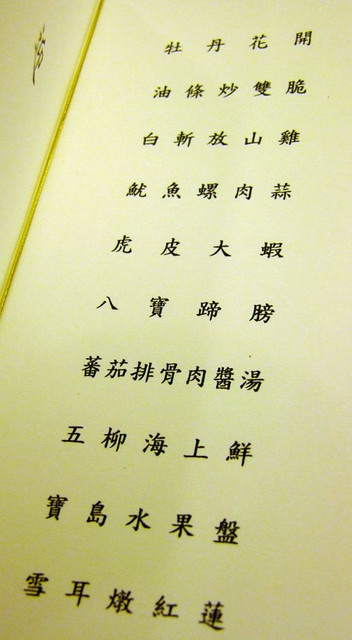 牡丹花開
油條炒雙脆
白斬放山雞
魷魚螺肉蒜
虎皮大蝦
八寶蹄膀
蕃茄排骨肉醬湯
五柳海上鮮
寶島水果盤
雪耳燉紅蓮